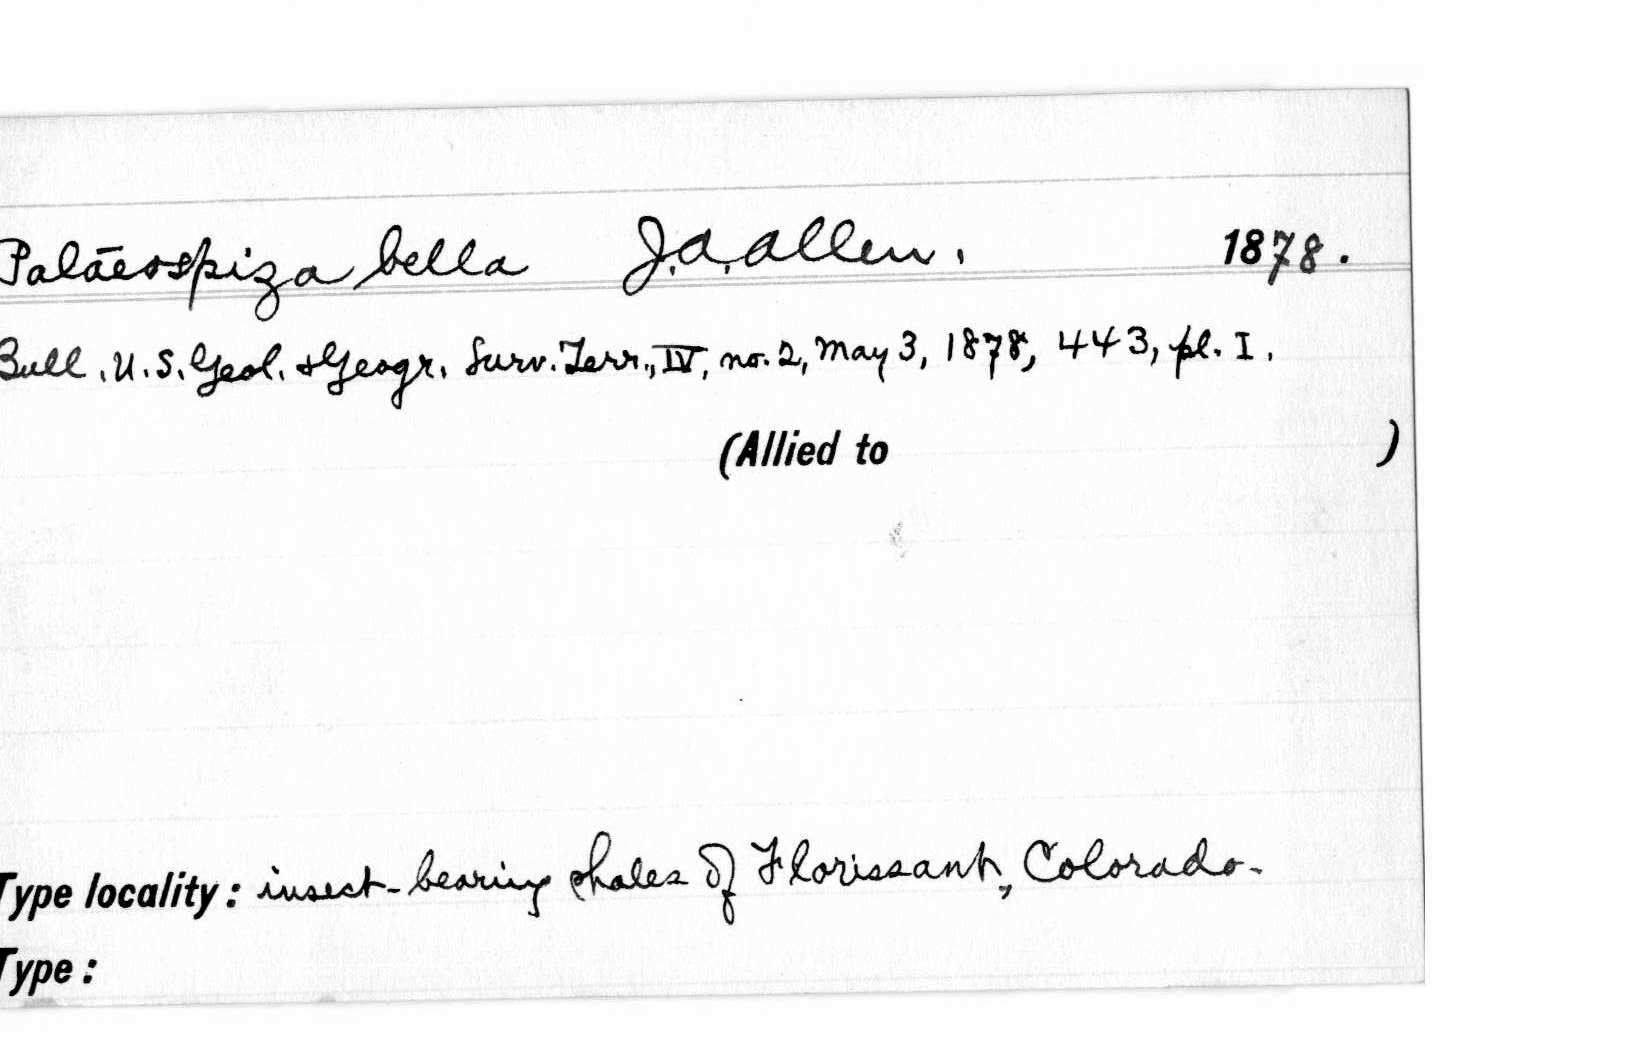 Palāeospiza bella J.A. Allen. 1878.
Bull. U.S. Geol. & Geogr. Surv. Terr., IV, no. 2, May 3, 1878, 443, pl. I.
(Allied to )
Type locality: insect-bearing shales of Florissant, Colorado-
Type: